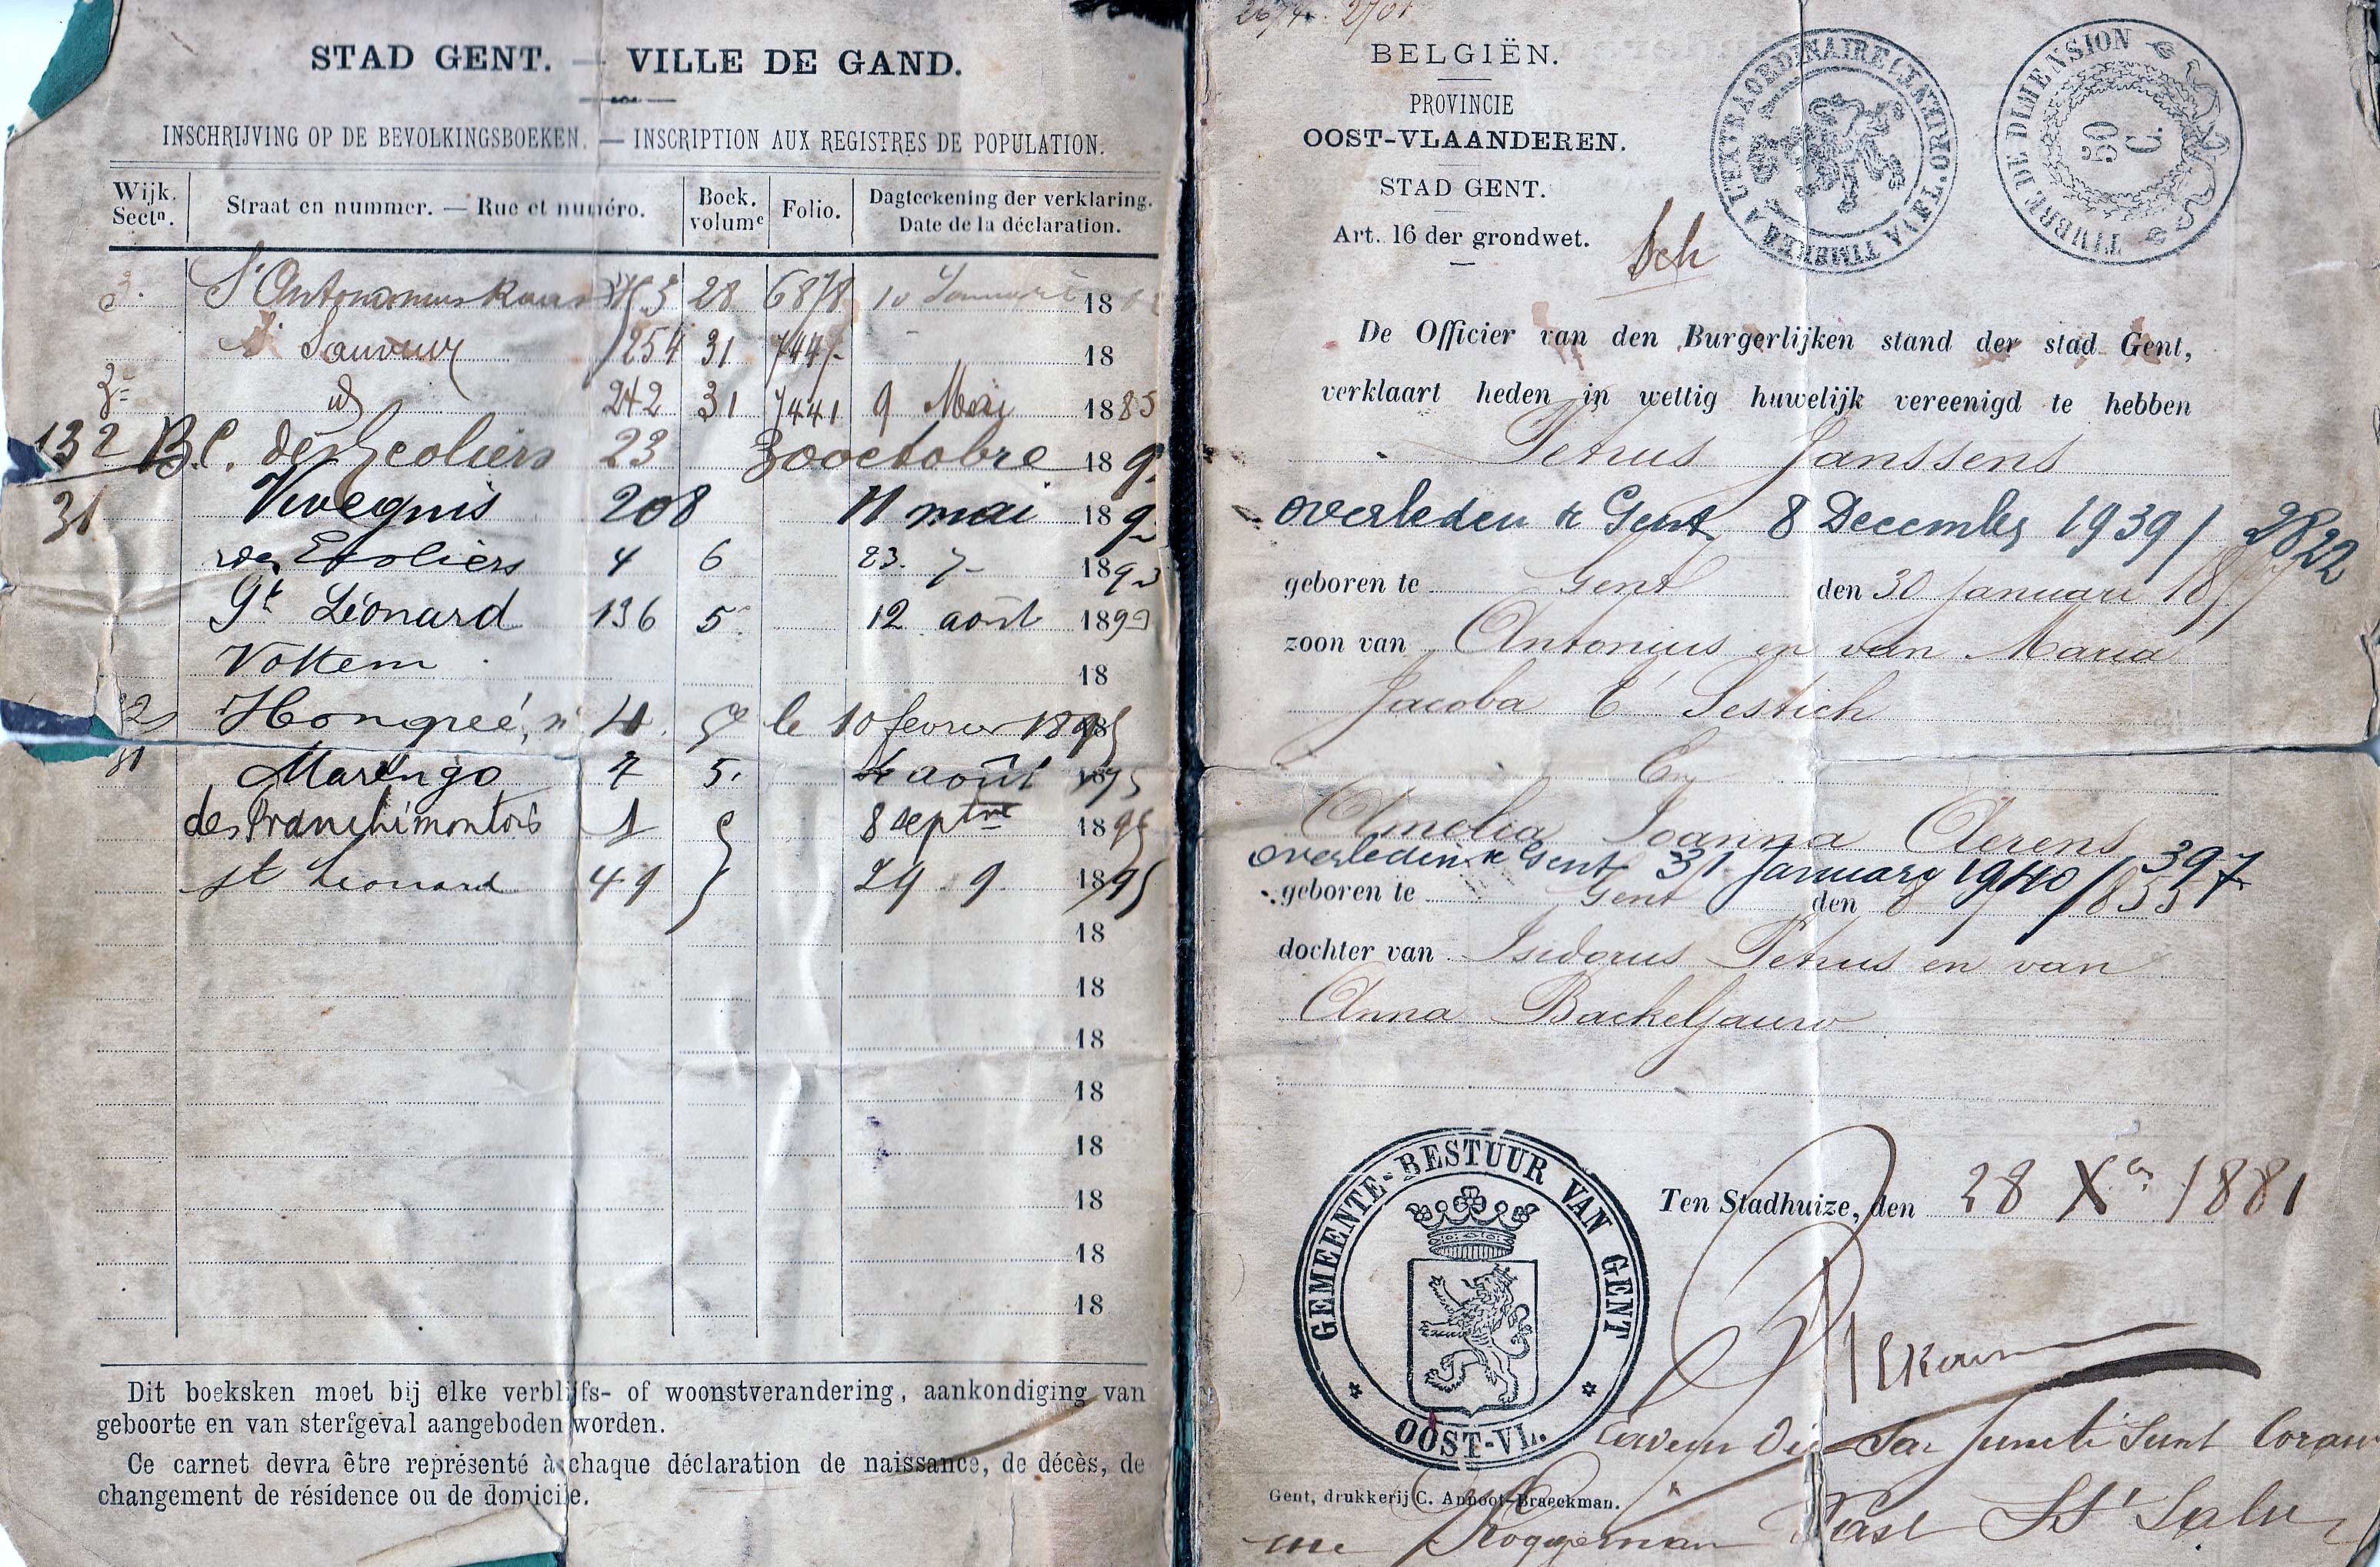 STAD GENT. — VILLE DE GAND.
INSCHRIJVING OP DE BEVOLKINGSBOEKEN. — INSCRIPTION AUX REGISTRES DE POPULATION.
Wijk. Sectn. Straat en nummer. — Rue et numéro. Boek. volume Folio. Dagteekening der verklaring. Date de la déclaration.
28 6878 10 Januari 18
St Sauveur 254 31 18
id 242 31 7441 9 Mai 1885
132 des Ecoliers 23 30 octobre 189
31 Vivegnis 208 11 mai 189
des Ecoliers 4 6 23. 7 1893
St Léonard 136 5 12 août 189
Vottem 18
Hongrée, n° le 10 fevrier 1895
81 Marengo 7 5. 4 août 1895
des Franchimontois 1 5 8 septbre 1895
st Leonard 49 5 29. 9. 1895
18
18
18
18
18
18
18
18
Dit boeksken moet bij elke verblijfs- of woonstverandering, aankondiging van
geboorte en van sterfgeval aangeboden worden.
Ce carnet devra être représenté à chaque déclaration de naissance, de décès, de
changement de résidence ou de domicile.
BELGIËN.
PROVINCIE
OOST-VLAANDEREN.
STAD GENT.
Art. 16 der grondwet.
TIMBRE A L'EXTRAORDINAIRE
TIMBRE DE DIMENSION
50 C.
De Officier van den Burgerlijken stand der stad Gent,
verklaart heden in wettig huwelijk vereenigd te hebben
Petrus Janssens
overleden te Gent 8 December 1939 / 2822
geboren te Gent den 30 Januari 18
zoon van Antonius en van Maria
Jacoba
En
Amelia Joanna Aerens
overleden te Gent 31 January 1940 / 397
geboren te Gent den 1855
dochter van Isidorus Petrus en van
Anna Backeljauw
GEMEENTE-BESTUUR VAN GENT
OOST-VL.
Ten Stadhuize, den 28 Xer 1881
juncti sunt Coram
me Roggeman Past St Salv
Gent, drukkerij C. Annoot-Braeckman.